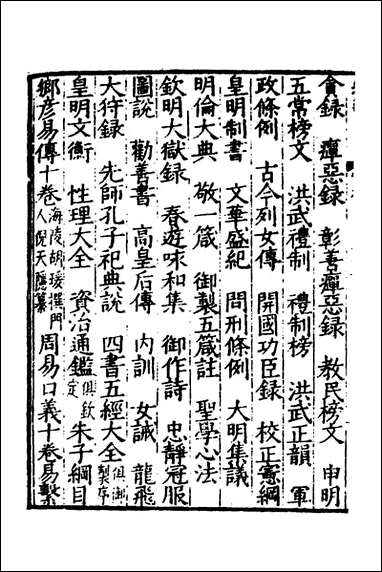 貪録　癉惡録　彰善癉惡録　教民榜文　申明
五常榜文　洪武禮制　禮制榜　洪武正韻　軍
政條例　古今列女傳　開國功臣録　校正憲綱
皇明制書　文華盛紀　問刑條例　大明集議
明倫大典　敬一箴　御製五箴註　聖學心法
欽明大獄録　春遊咏和集　御作詩　忠靜冠服
圖說　勸善書　高皇后傳　内訓　女誡　龍飛
大狩録　先師孔子祀典說　四書五經大全俱御製序
皇明文衡　性理大全　資治通鑑俱欽定　朱子綱目
鄉彦易傳十卷海陵胡瑗撰門人倪天隱纂　周易口義十卷易繫